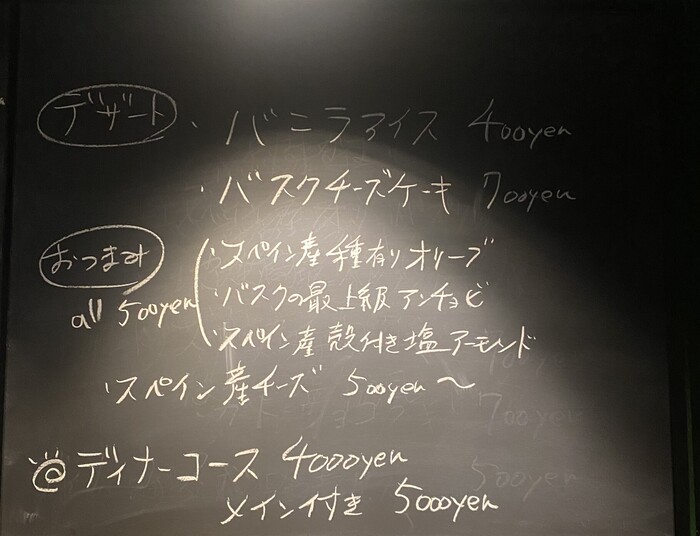 デザート ・バニラアイス 400yen
・バスクチーズケーキ 700yen
おつまみ ・スペイン産種有りオリーブ
all 500yen ・バスクの最上級アンチョビ
・スペイン産殻付き塩アーモンド
・スペイン産チーズ 500yen〜
700yen
500yen
◎ディナーコース 4000yen
メイン付き 5000yen